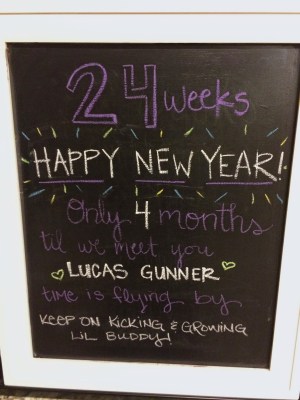 24 weeks
HAPPY NEW YEAR!
Only 4 months
til we meet you
LUCAS GUNNER
time is flying by
KEEP ON KICKING & GROWING
LIL BUDDY!